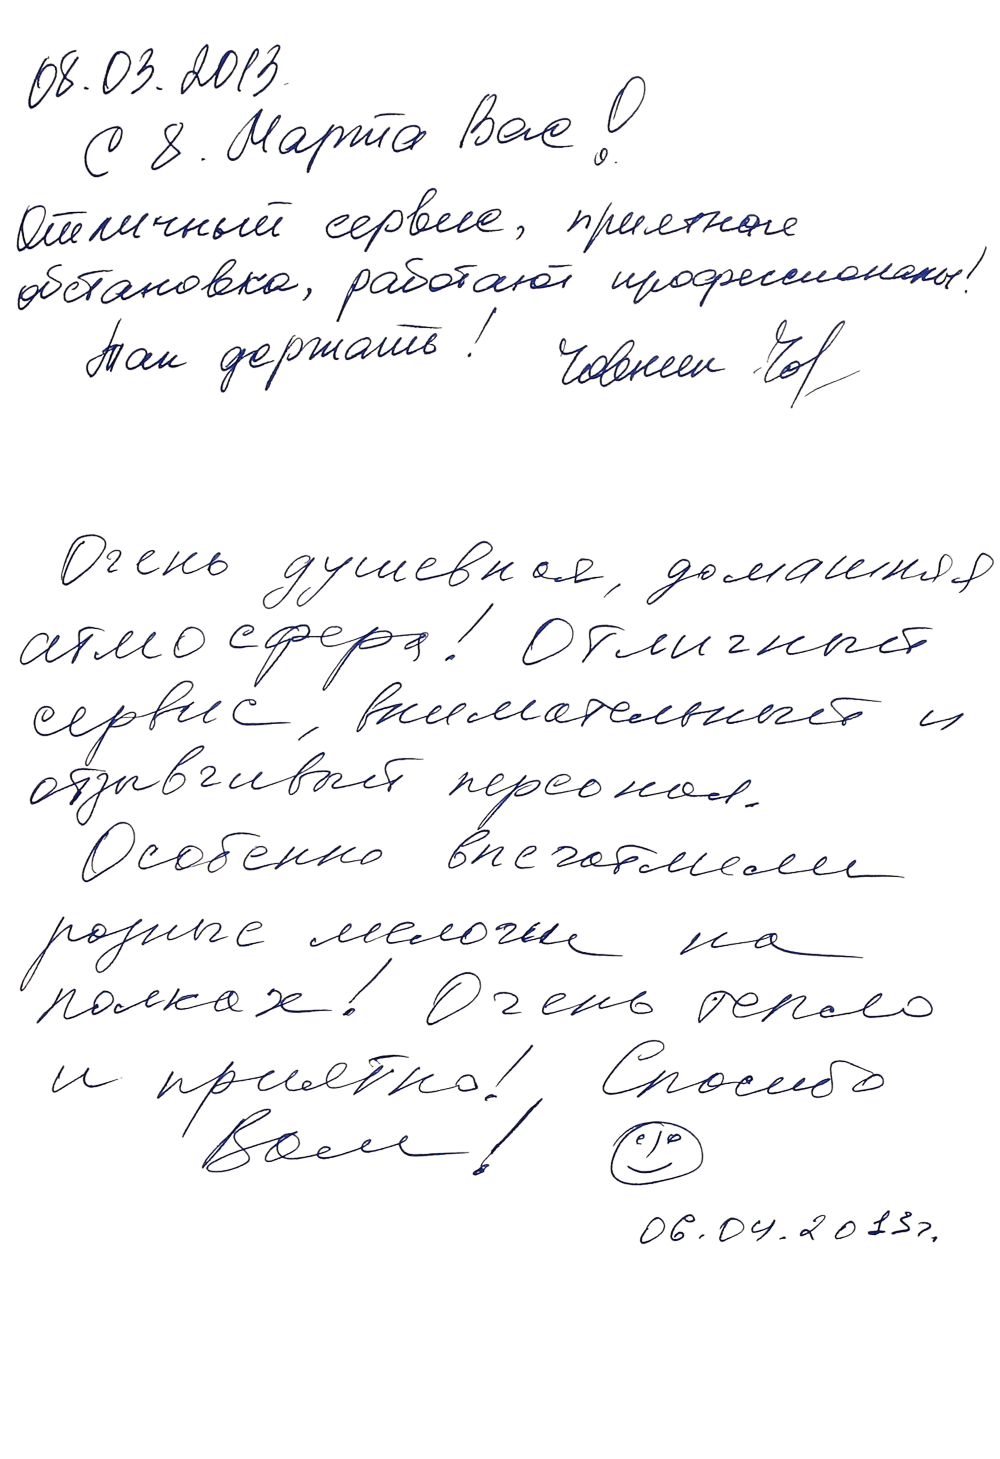 08.03.2013.
С 8. Марта Вас!
Отличный сервис, приятная
обстановка, работают профессионалы!
Так держать!
Очень душевная, домашняя
атмосфера! Отличный
сервис, внимательный и
отзывчивый персонал.
Особенно впечатлили
разные мелочи на
полках! Очень тепло
и приятно! Спасибо
Вам!
06.04.2013г.